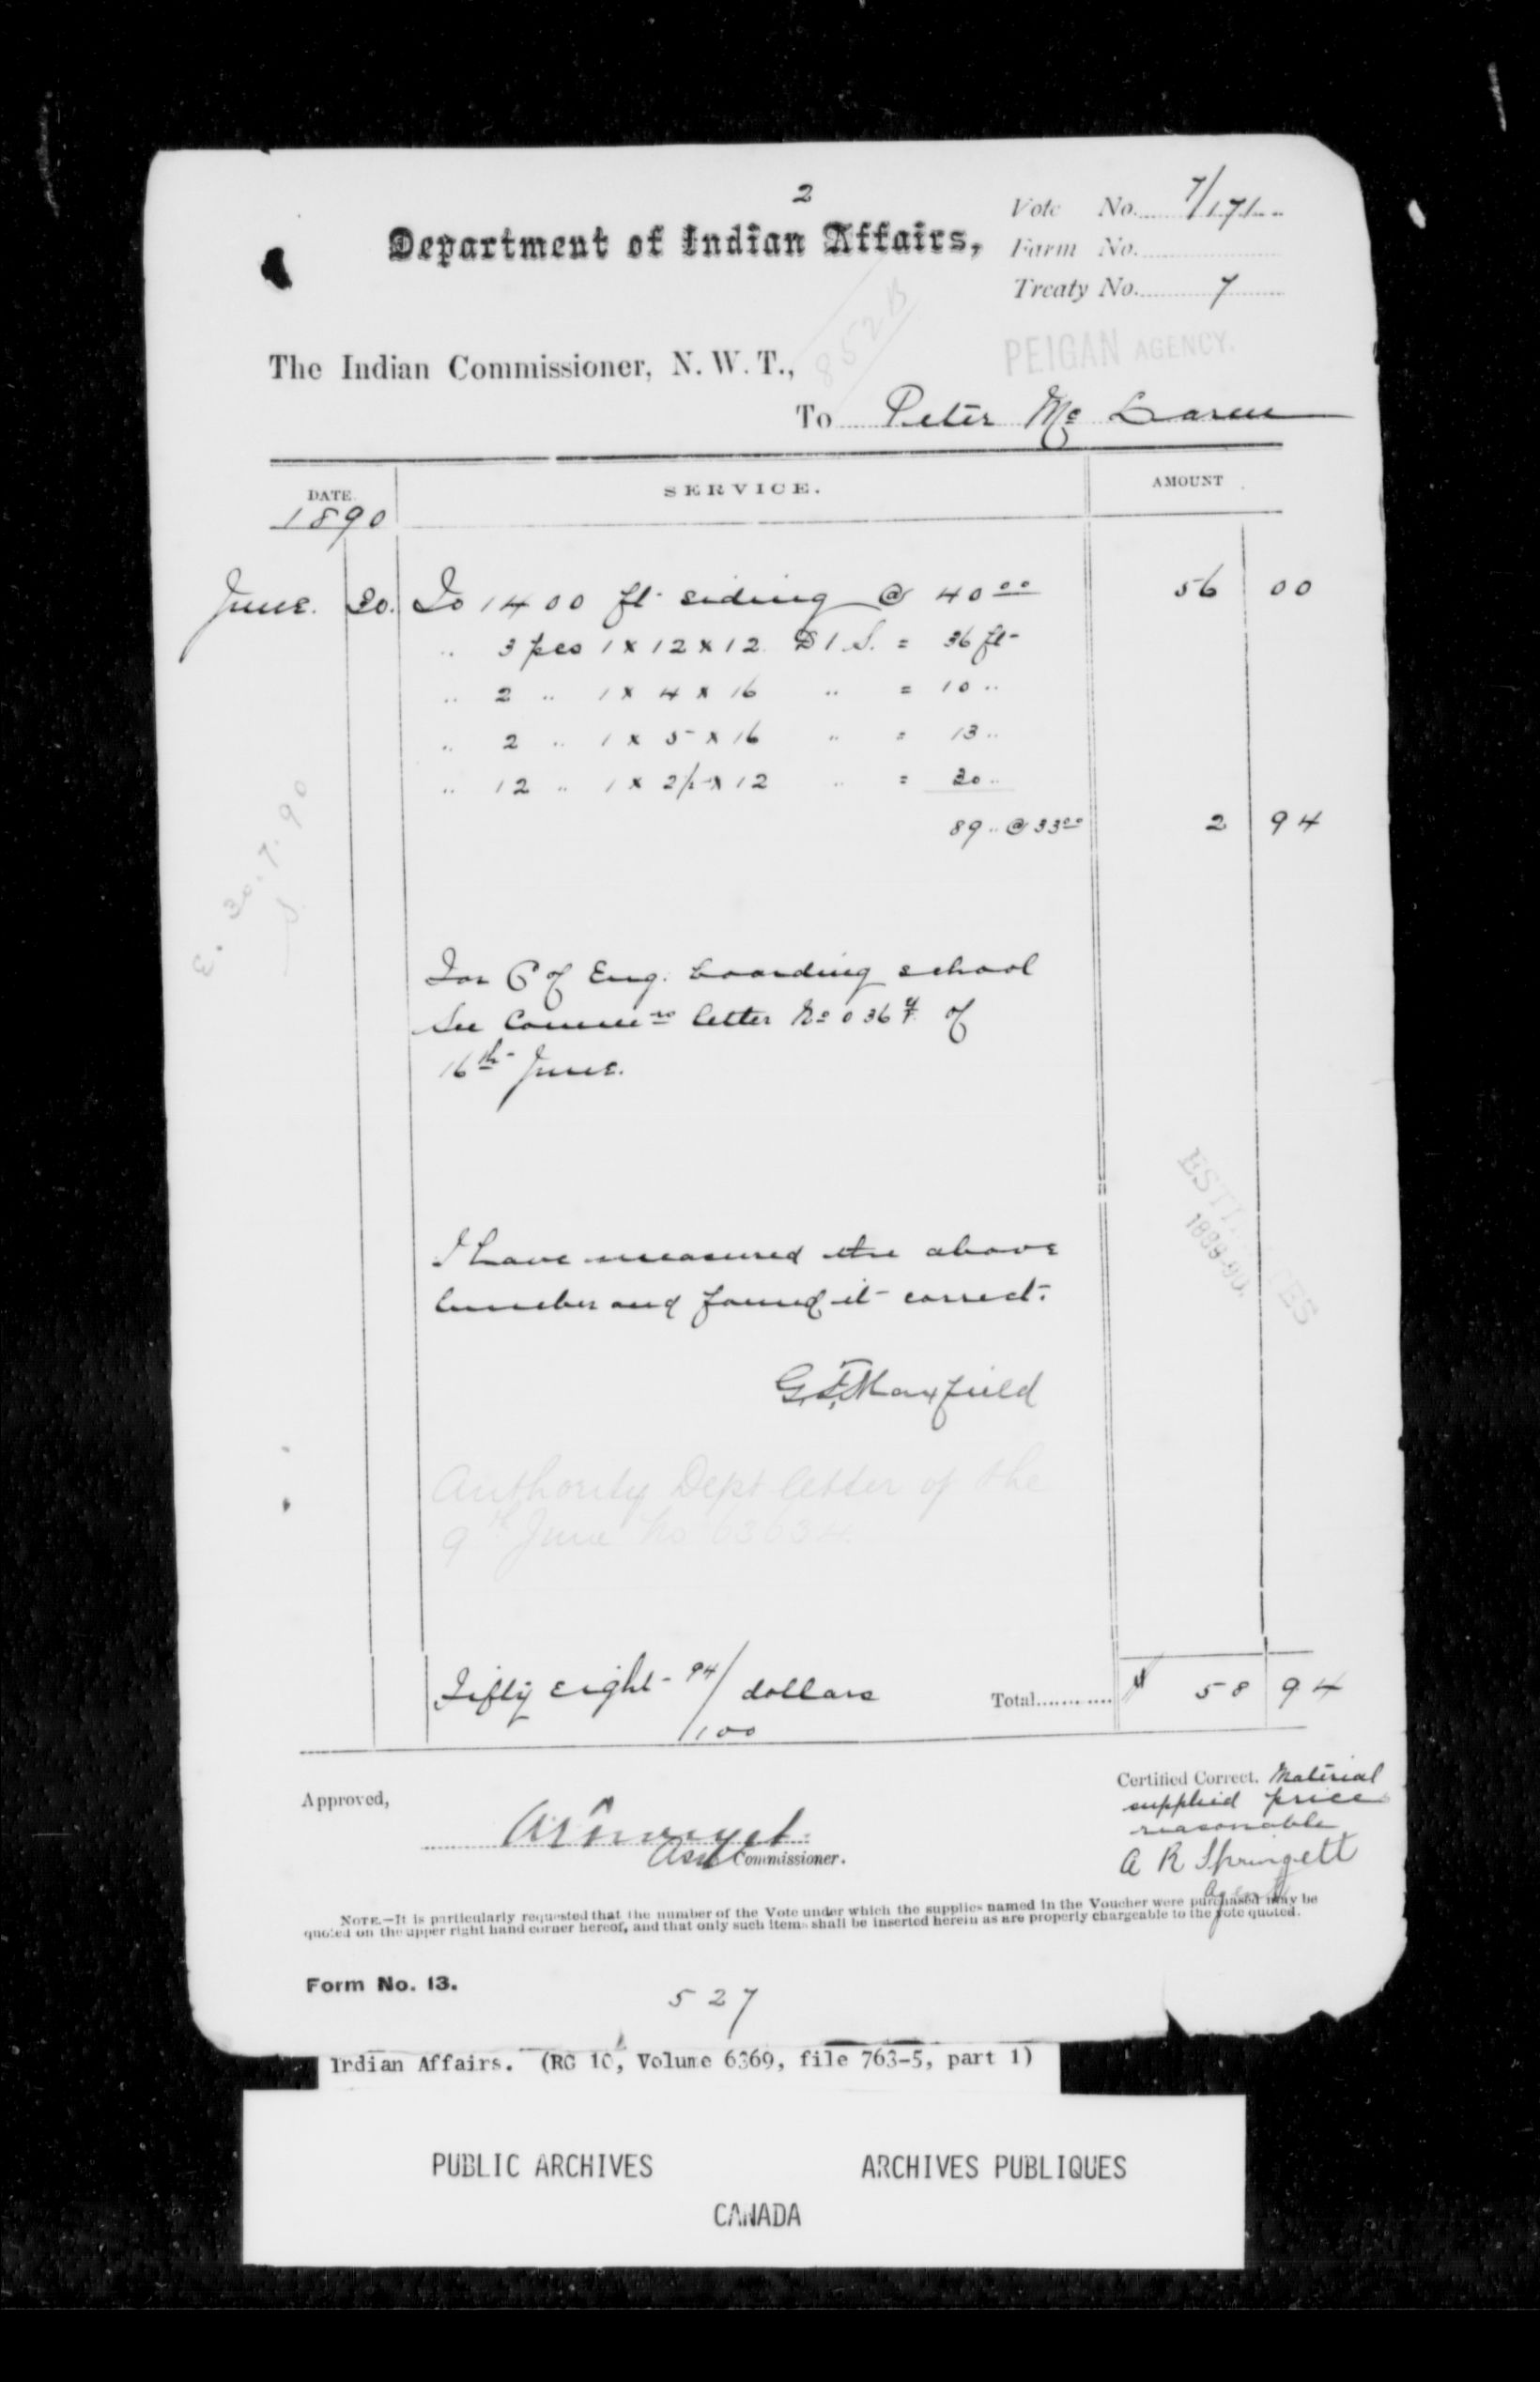 2
Vote No. 7/171
Department of Indian Affairs,
Farm No.
Treaty No. 7
852B
The Indian Commissioner, N. W. T.,
PEIGAN AGENCY.
To Peter Mc Laren
DATE SERVICE. AMOUNT
1890
June. 30. To 1400 ft. siding @ 40 00 56 00
" 3 pcs 1 x 12 x 12 D 1 S. = 36 ft
" 2 " 1 x 4 x 16 " = 10 "
" 2 " 1 x 5 x 16 " = 13 "
" 12 " 1 x 2½ x 12 " = 30 "
89 " @ 33 00 2 94
E. 30.7.90
For C of Eng. boarding school
See Commrs letter No 036 of
16th June.
ESTIMATES
1889-90.
I have measured the above
lumber and found it correct.
G. F. Maxfield
Authority Dept letter of the
9th June No 63634
Fifty eight 94/100 dollars Total............ $ 58 94
Approved,
Certified Correct. Material
supplied price
reasonable
Asst Commissioner.
A R Springett
Agent
NOTE.—It is particularly requested that the number of the Vote under which the supplies named in the Voucher were purchased may be
quoted on the upper right hand corner hereof, and that only such items shall be inserted herein as are properly chargeable to the vote quoted.
Form No. 13.
527
Indian Affairs. (RG 10, Volume 6369, file 763-5, part 1)
PUBLIC ARCHIVES ARCHIVES PUBLIQUES
CANADA